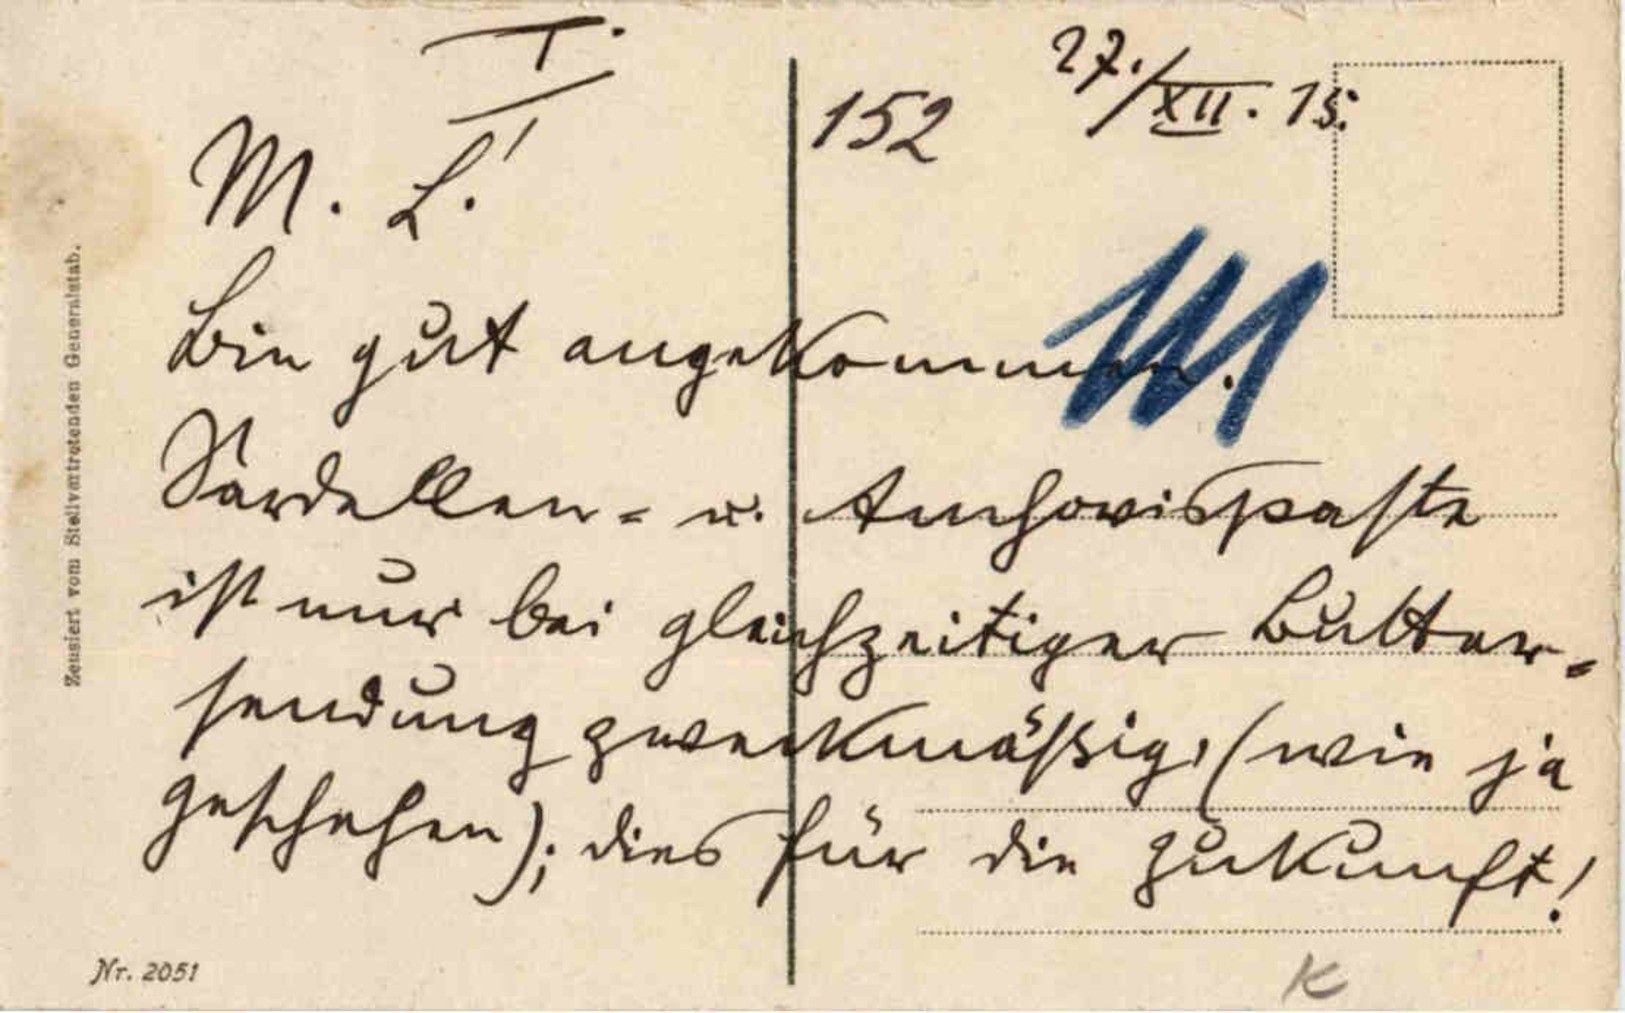 I.
152
27./XII. 15.
M. L.!
Bin gut angekommen.
Sardellen- u. Anchovispaste
ist nur bei gleichzeitiger Butter-
sendung zweckmäßig, (wie ja
geschehen); dies für die Zukunft!
Zensiert vom Stellvertretenden Generalstab.
Nr. 2051
K